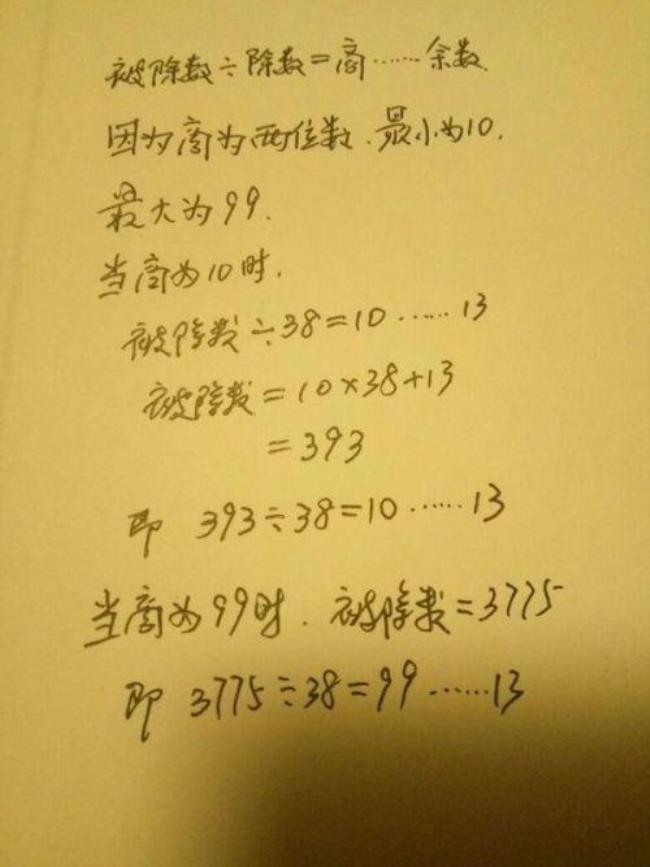 被除数÷除数=商……余数.
因为商为两位数.最小为10.
最大为99.
当商为10时.
被除数÷38=10……13
被除数=10×38+13
=393
即 393÷38=10……13
当商为99时.被除数=3775
即 3775÷38=99……13